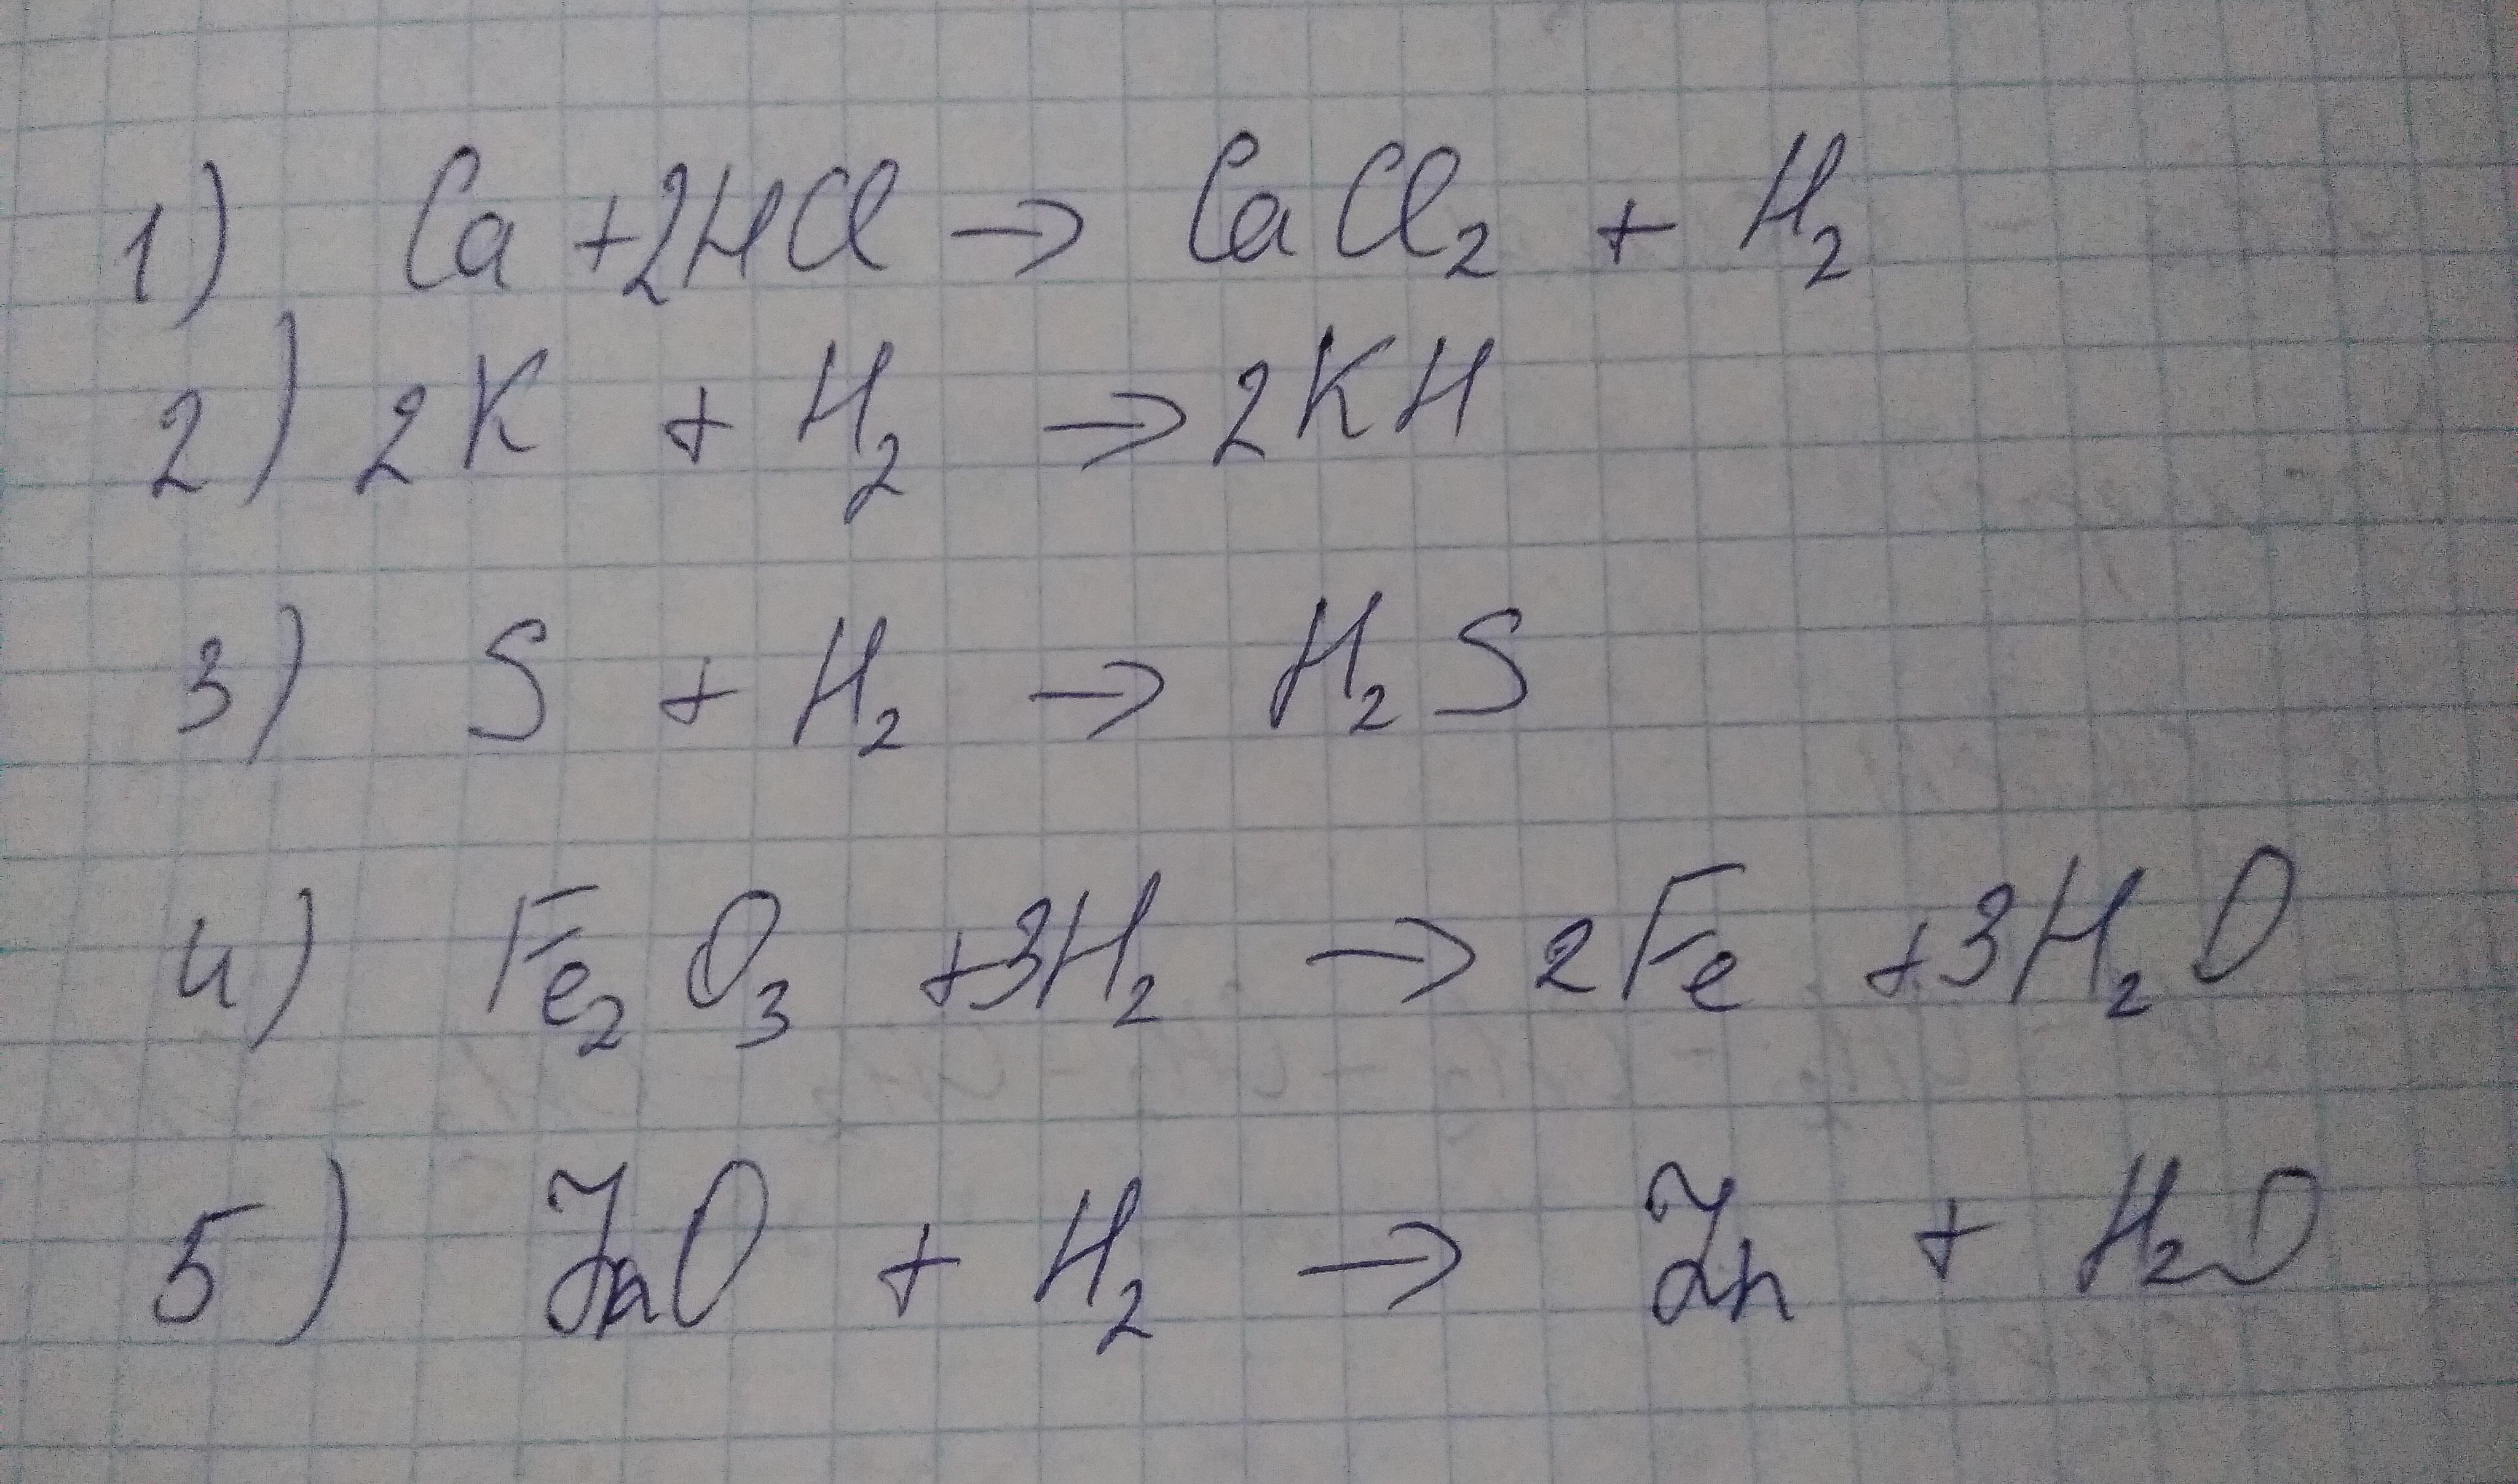 1) Ca + 2HCl → CaCl₂ + H₂
2) 2K + H₂ → 2KH
3) S + H₂ → H₂S
4) Fe₂O₃ + 3H₂ → 2Fe + 3H₂O
5) ZnO + H₂ → Zn + H₂O